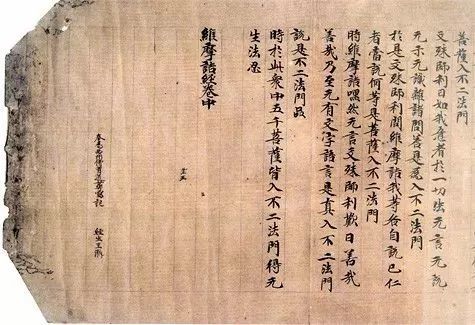 菩薩入不二法門
文殊師利曰如我意者於一切法无言无說
无示无識離諸問荅是為入不二法門
於是文殊師利問維摩詰我等各自說已仁
者當說何等是菩薩入不二法門
時維摩詰嘿然无言文殊師利歎曰善哉
善哉乃至无有文字語言是真入不二法門
說是不二法門品
時於此衆中五千菩薩皆入不二法門得无
生法忍
維摩詰經卷中
奉為西州僧昌意寫記
經生王瀚